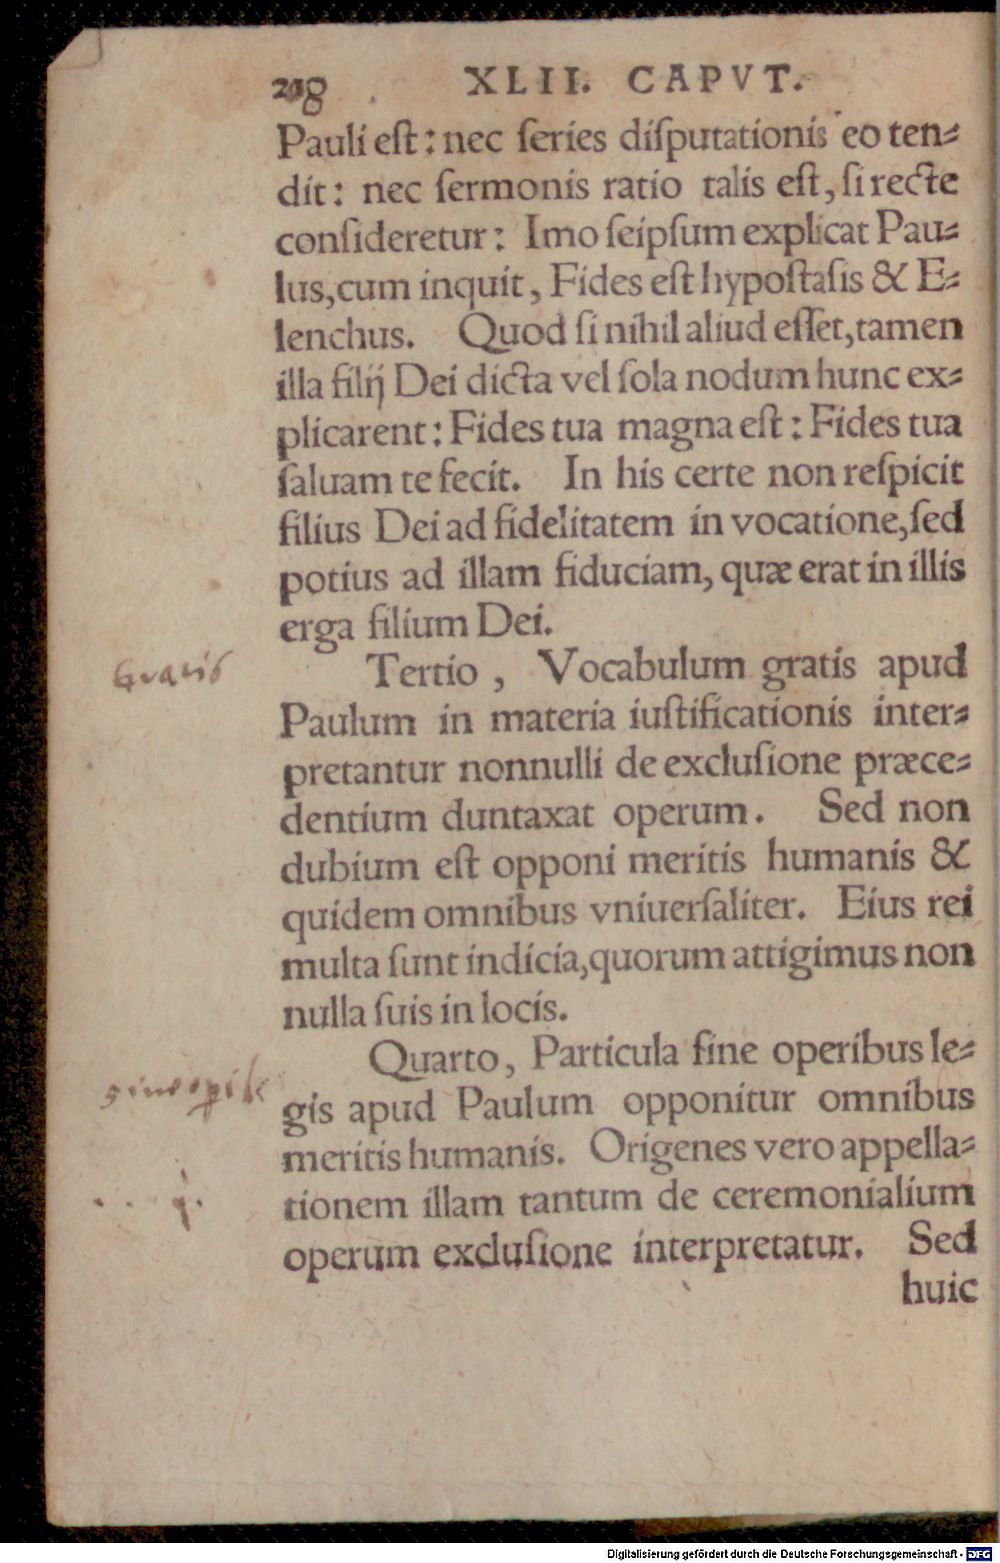 218 XLII. CAPVT.
Pauli eſt: nec ſeries diſputationis eo ten⸗
dit: nec ſermonis ratio talis eſt, ſi recte
conſideretur: Imo ſeipſum explicat Pau⸗
lus, cum inquit, Fides eſt hypoſtaſis & E⸗
lenchus. Quod ſi nihil aliud eſſet, tamen
illa filij Dei dicta vel ſola nodum hunc ex⸗
plicarent: Fides tua magna eſt: Fides tua
ſaluam te fecit. In his certe non reſpicit
filius Dei ad fidelitatem in vocatione, ſed
potius ad illam fiduciam, quæ erat in illis
erga filium Dei.
Gratis
Tertio, Vocabulum gratis apud
Paulum in materia iuſtificationis inter⸗
pretantur nonnulli de excluſione præce⸗
dentium duntaxat operum. Sed non
dubium eſt opponi meritis humanis &
quidem omnibus vniuerſaliter. Eius rei
multa ſunt indicia, quorum attigimus non
nulla ſuis in locis.
Quarto, Particula ſine operibus le⸗
gis apud Paulum opponitur omnibus
meritis humanis. Origenes vero appella⸗
tionem illam tantum de ceremonialium
operum excluſione interpretatur. Sed
huic
Digitalisierung gefördert durch die Deutsche Forschungsgemeinschaft - DFG